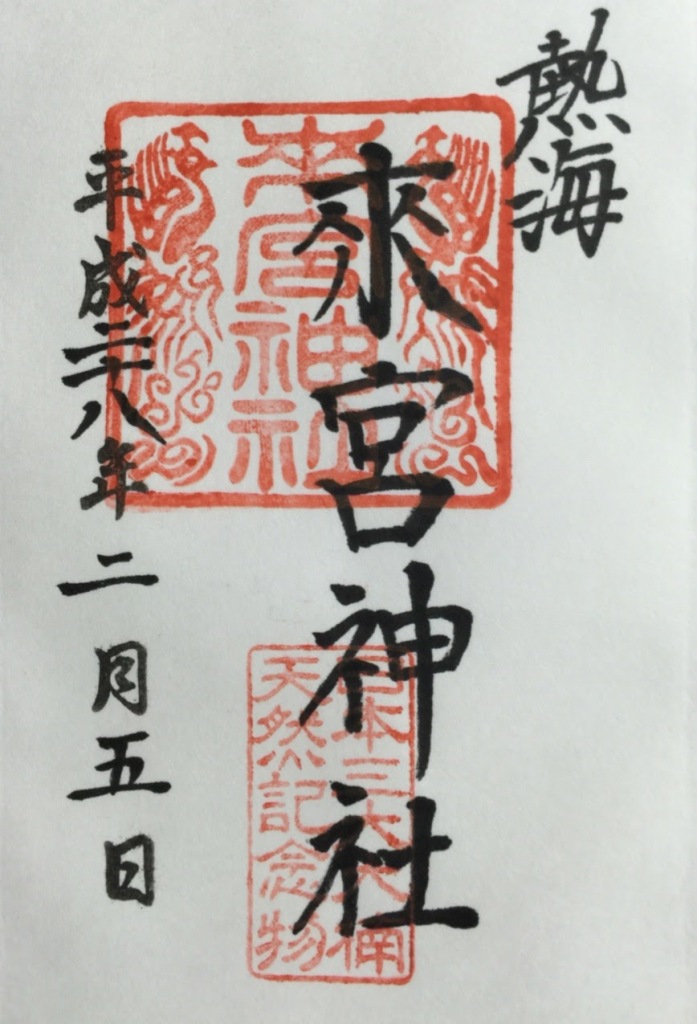 熱海
來宮神社
平成二十八年二月五日
来宮神社
日本三大大楠
天然記念物